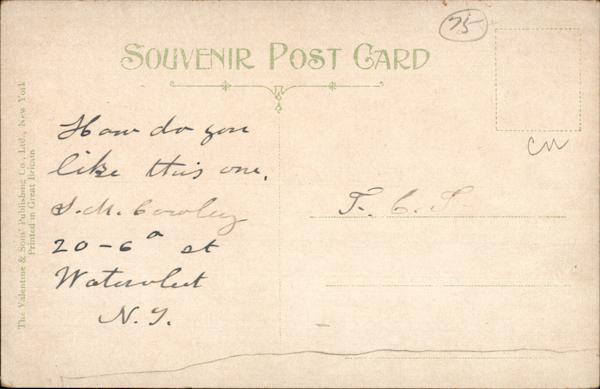 75
SOUVENIR POST CARD
How do you
like this one.
S. M. Cowley
20-6ª st
Watervliet
N. Y.
F. C. S
CN
The Valentine & Sons' Publishing Co., Ltd., New York
Printed in Great Britain